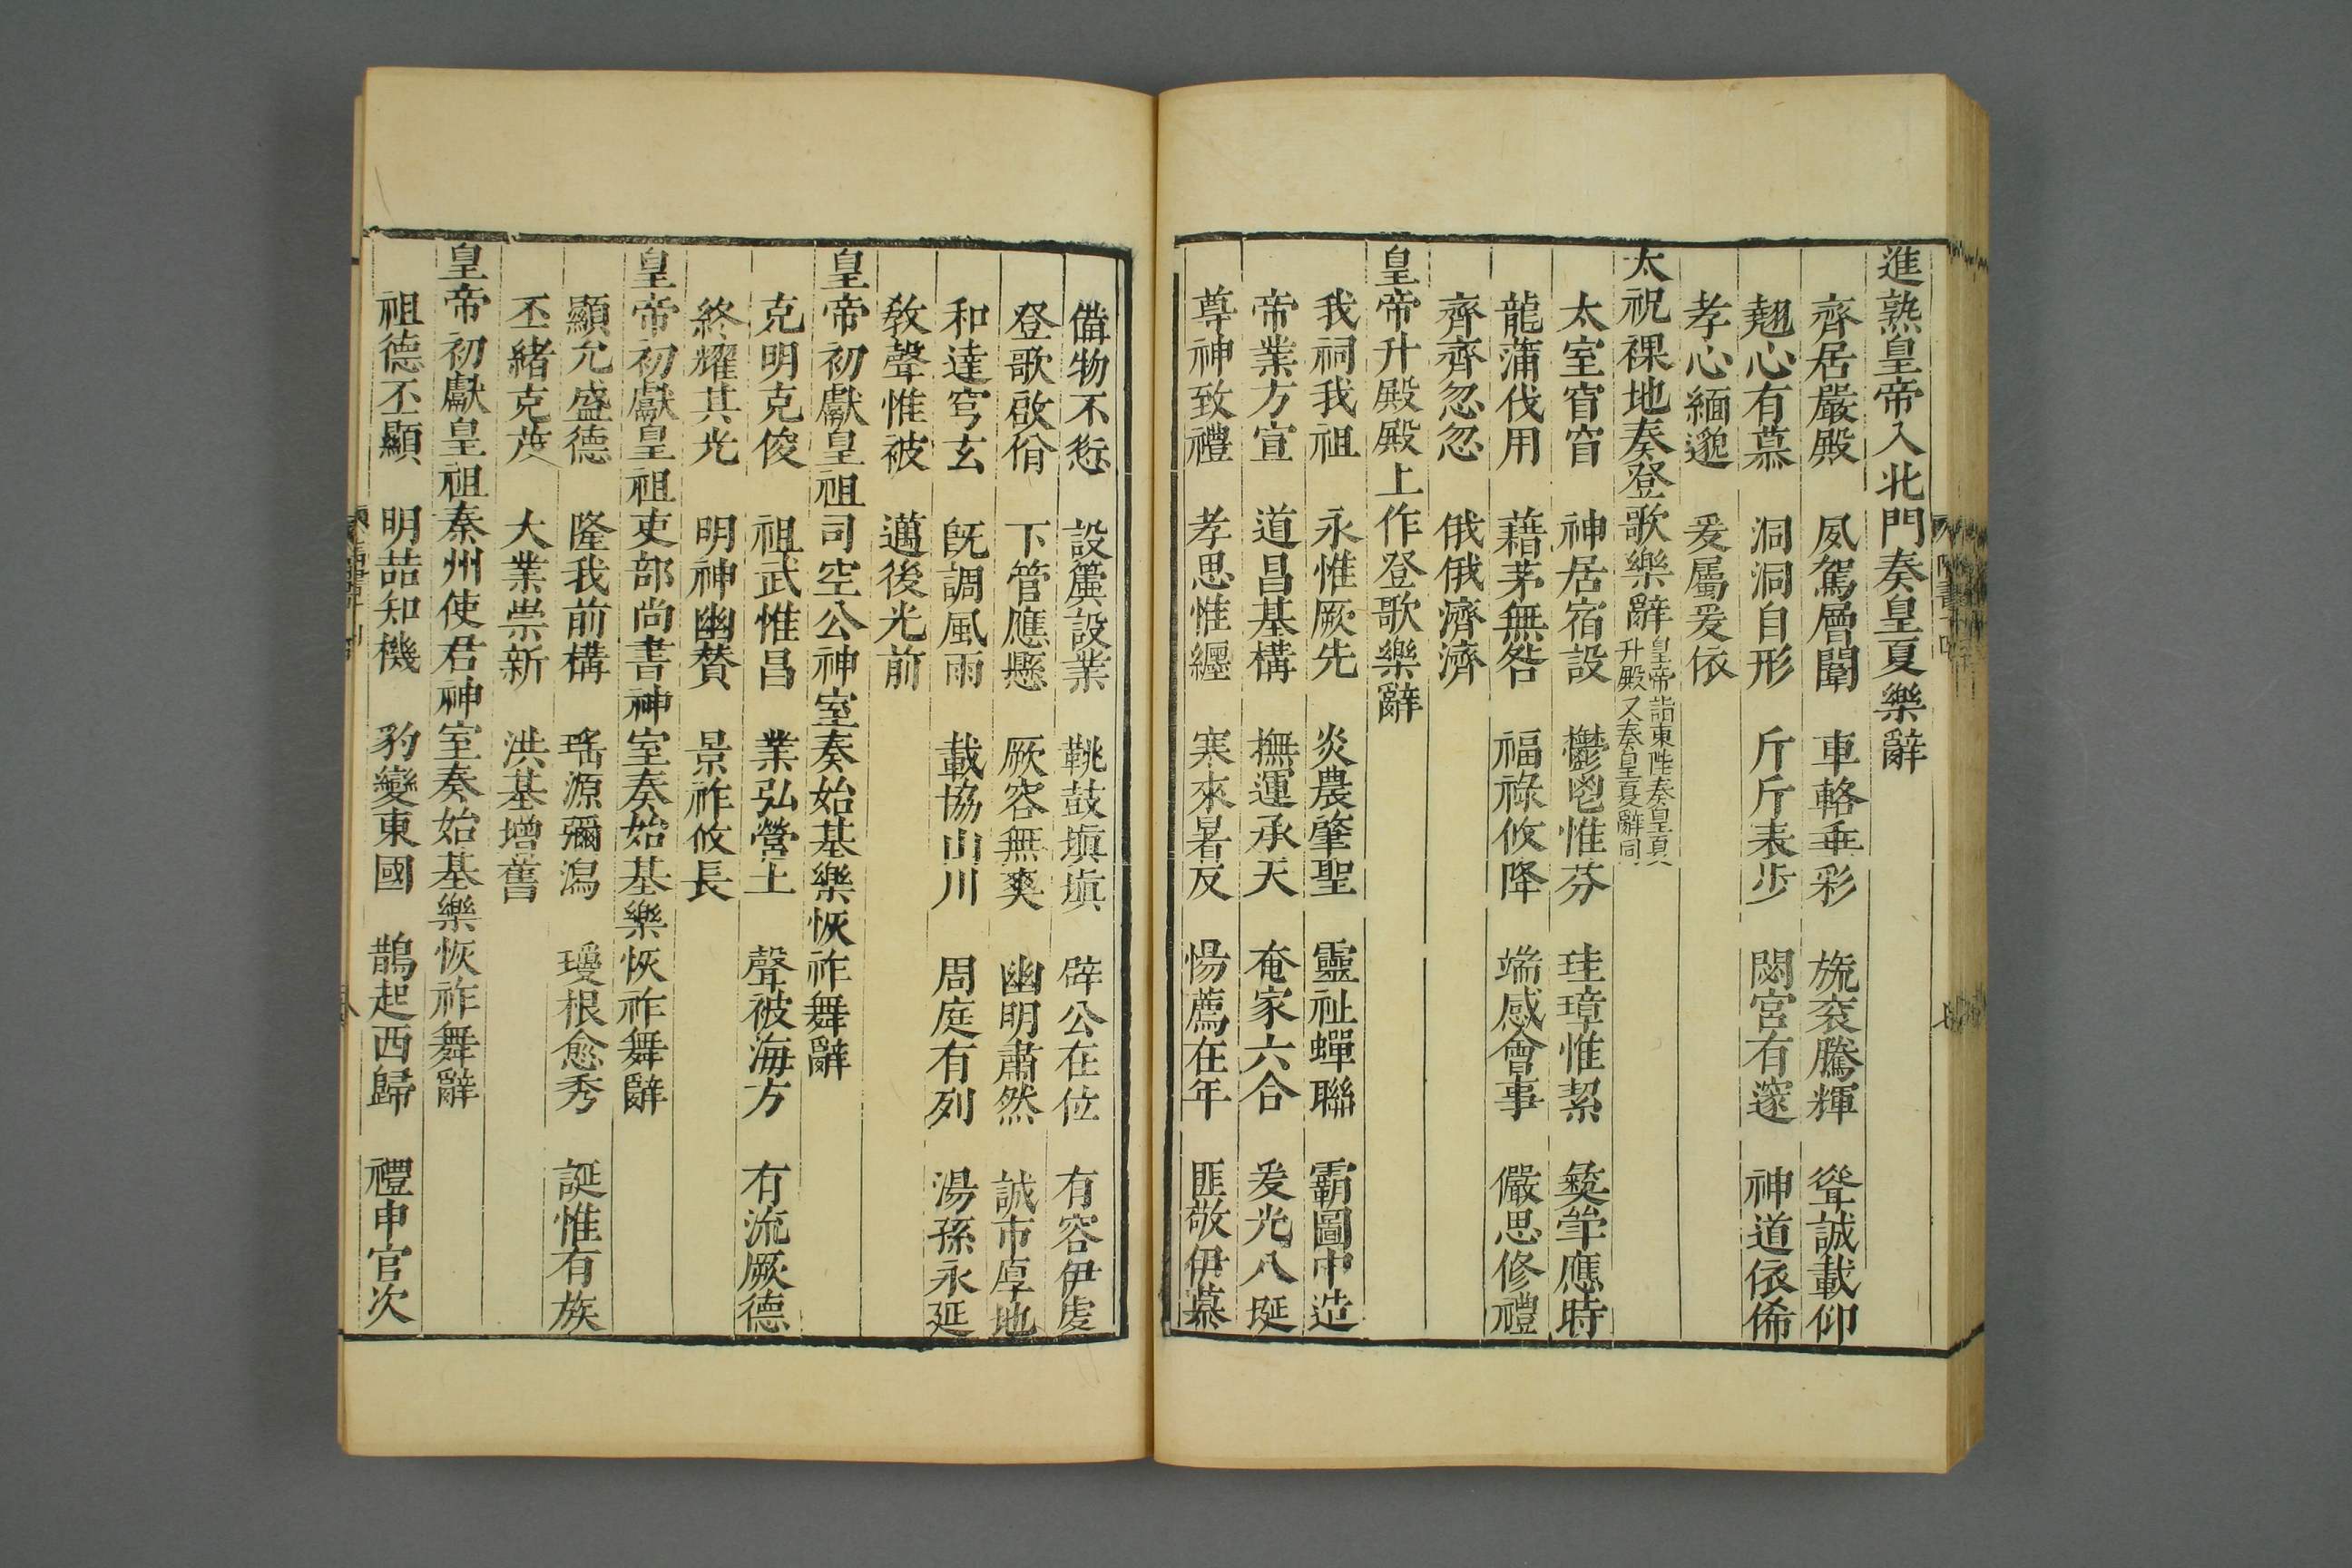 進熟皇帝入北門奏皇夏樂辭
齊居嚴殿 夙駕層闈 車輅垂彩 旒衮騰輝 聳誠載仰
翹心有慕 洞洞自形 斤斤表步 閟宮有邃 神道依俙
孝心緬邈 爰屬爰依
太祝祼地奏登歌樂辭 皇帝詣東陛奏皇夏升殿又奏皇夏辭同
太室窅窅 神居宿設 鬱鬯惟芬 珪璋惟絜 彝斝應時
龍蒲伐用 藉茅無咎 福祿攸降 端感會事 儼思修禮
齊齊忽忽 俄俄濟濟
皇帝升殿殿上作登歌樂辭
我祠我祖 永惟厥先 炎農肇聖 靈祉蟬聯 霸圖中造
帝業方宣 道昌基構 撫運承天 奄家六合 爰光八埏
尊神致禮 孝思惟纏 寒來暑反 惕薦在年 匪敬伊慕
備物不愆 設簴設業 鞉鼓塡塡 辟公在位 有容伊虔
登歌啟佾 下管應懸 厥容無爽 幽明肅然 誠帀厚地
和達穹玄 旣調風雨 載協山川 周庭有列 湯孫永延
敎聲惟被 邁後光前
皇帝初獻皇祖司空公神室奏始基樂恢祚舞辭
克明克俊 祖武惟昌 業弘營土 聲被海方 有流厥德
終耀其光 明神幽贊 景祚攸長
皇帝初獻皇祖吏部尚書神室奏始基樂恢祚舞辭
顯允盛德 隆我前構 瑤源彌瀉 瓊根愈秀 誕惟有族
丕緒克茂 大業崇新 洪基增舊
皇帝初獻皇祖秦州使君神室奏始基樂恢祚舞辭
祖德丕顯 明喆知機 豹變東國 鵲起西歸 禮申官次